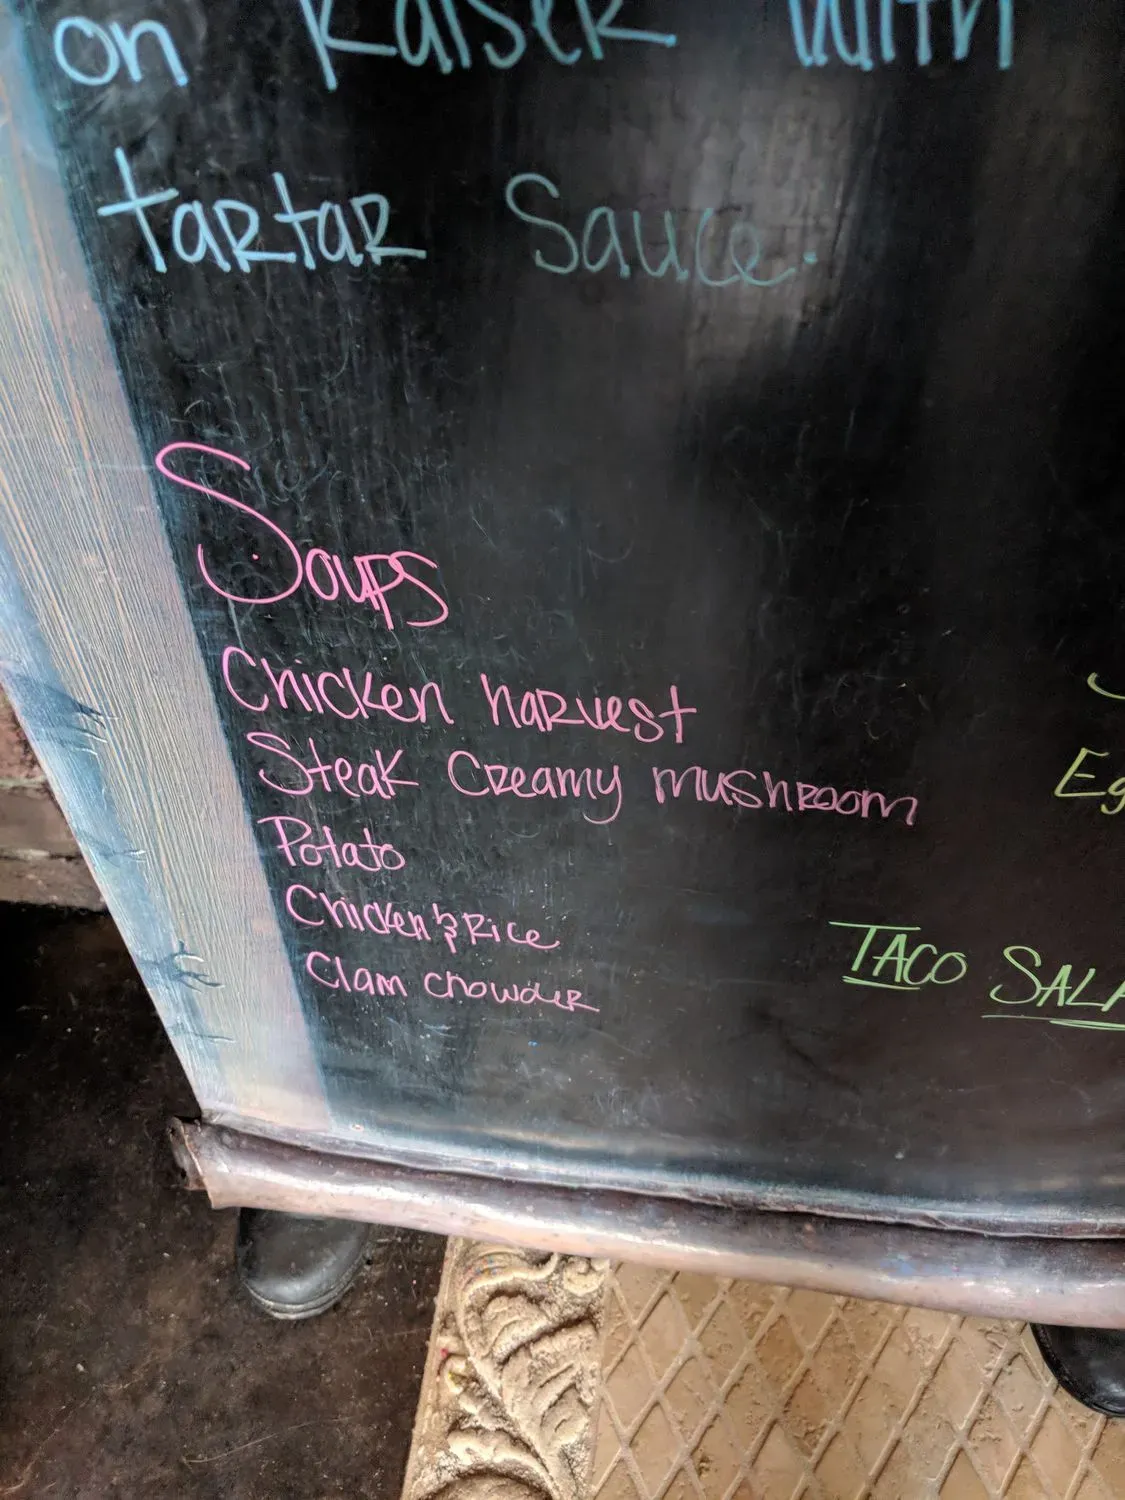 on Kaiser with
tartar Sauce.
Soups
Chicken harvest
Steak Creamy mushroom
Potato
Chicken & Rice
Clam chowder
TACO